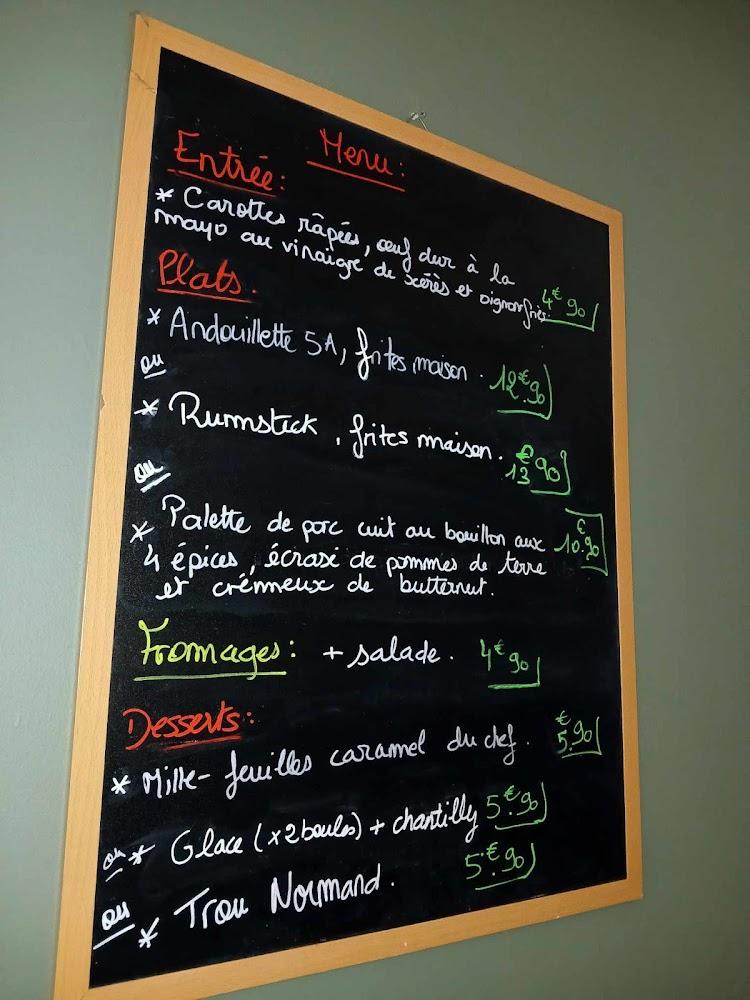 Menu :
Entrée :
* Carottes râpées, œuf dur à la
mayo au vinaigre de xérès et oignon frits. 4€90
Plats.
* Andouillette 5A, frites maison. 12€90
ou
* Rumsteck, frites maison. 13€90
ou
* Palette de porc cuit au bouillon aux 10€90
4 épices, écrasé de pommes de terre
et crémeux de butternut.
Fromages : + salade. 4€90
Desserts :
* Mille-feuilles caramel du chef. 5€90
ou * Glace (x2 boules) + chantilly 5€90
ou * Trou Normand. 5€90